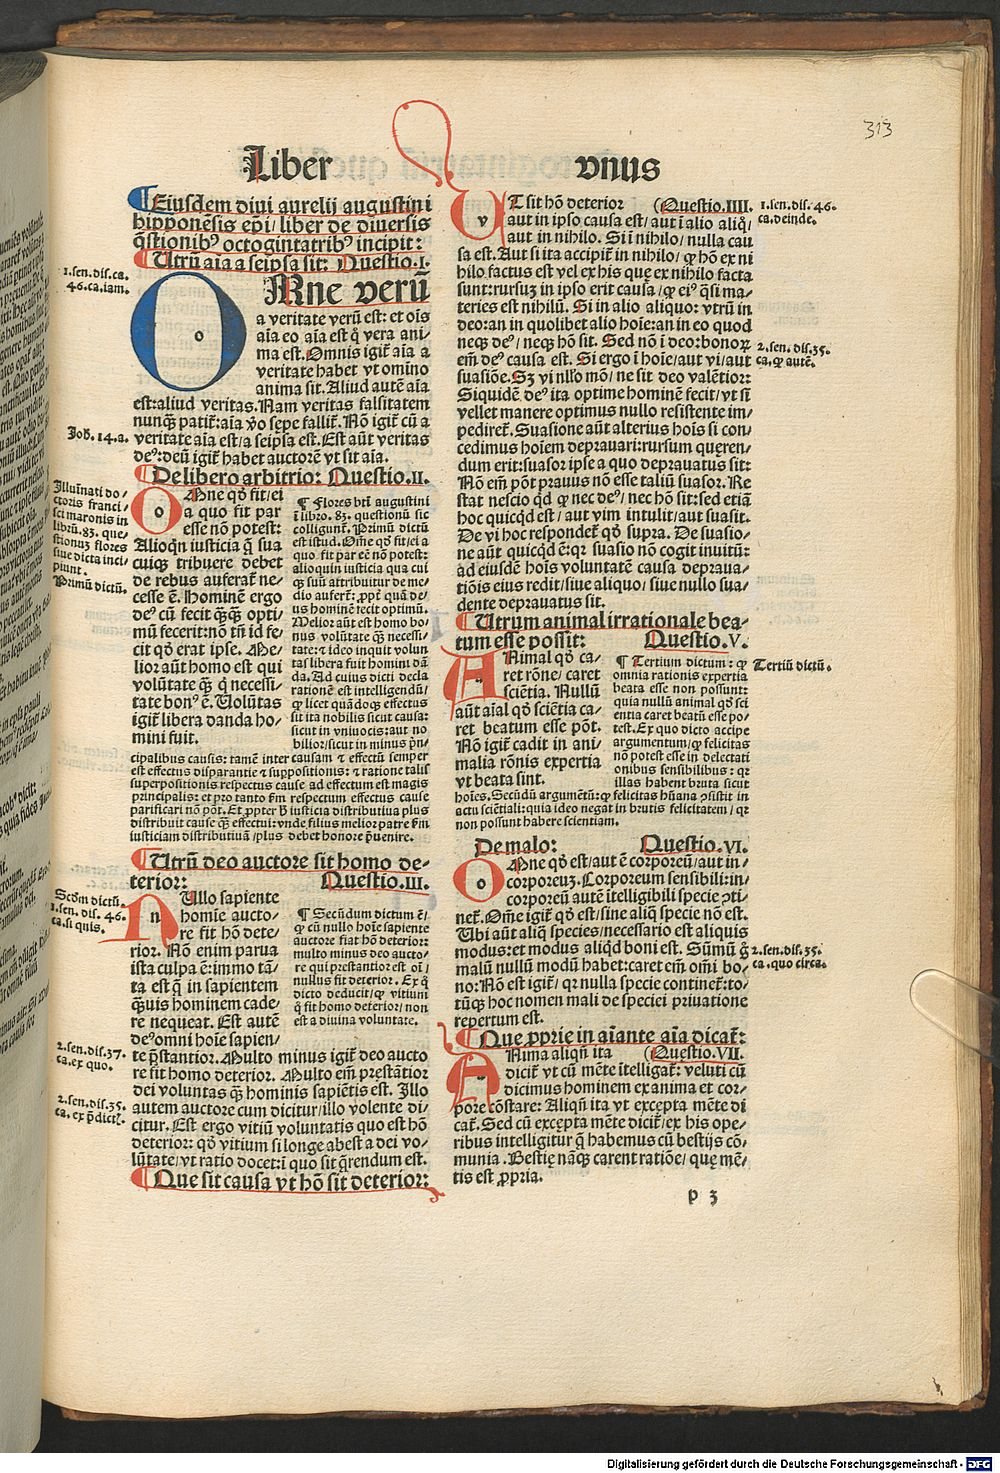 313
Liber vnus
¶ Eiusdem diui aurelij augustini
hipponēsis ep̄i/ liber de diuersis
q̄stionibꝰ octogintatribꝰ incipit:
¶ Utrū aīa a seipsa sit: Questio.I.
OMne verū
a veritate verū est: et oīs
aīa eo aīa est q̄ vera ani-
ma est. Omnis igit᷑ aīa a
veritate habet vt omīno
anima sit. Aliud autē aīa
est: aliud veritas. Nam veritas falsitatem
nunqꝫ patit᷑: aīa v̄o sępe fallit᷑. Nō igit᷑ cū a
veritate aīa est/ a seipsa est. Est aūt veritas
deꝰ: deū igit᷑ habet auctorē vt sit aīa.
1.sen.dis.ca.
46.ca.iam.
Joh.14.a.
¶ De libero arbitrio: Questio.II.
OMne qd̄ fit/ ei
a quo fit par
esse nōn potest:
Alioq̄n iusticia q̄ sua
cuiqꝫ tribuere debet
de rebus auferat᷑ ne-
cesse ē. Hominē ergo
deꝰ cū fecit q̄qꝫ opti-
mū fecerit: nō tn̄ id fe-
cit qd̄ erat ipse. Me-
lior aūt homo est qui
volūtate qꝫ q̄ necessi-
tate bonꝰ ē. Volūtas
igit᷑ libera danda ho-
mini fuit.
Illuīnati do-
ctoris franci-
sci maronis in
librū.83. que-
stionuꝫ flores
siue dicta inci
piunt.
Primū dictū.
¶ Flores bt̄i augustini
ī libro.83. questionū sic
colligunt᷑. Primū dictū
est istud. Om̄e qd̄ fit/ ei a
quo fit par eē nō potest:
alioquin iusticia qua cui
qꝫ suū attribuitur de me-
dio aufert᷑: ꝓpt̄ quā de-
us hominē fecit optimū.
Melior aūt est homo bo-
nus volūtate qꝫ necessi-
tate: ⁊ ideo inquit volun
tas libera fuit homini dā
da. Ad cuius dicti decla
rationē est intelligendū/
qꝫ licet quādoqꝫ effectus
sit ita nobilis sicut causa:
sicut in vniuocis: aut no
bilior/ sicut in minus p̄n-
cipalibus causis: tamē inter causam ⁊ effectū semper
est effectus disparantie ⁊ suppositionis: ⁊ ratione talis
superpositionis respectus cause ad effectum est magis
principalis: et pro tanto fm̄ respectum effectus cause
parificari nō pōt. Et ꝓpter h̄ iusticia distributiua plus
distribuit cause qꝫ effectui: vnde filius melior patre fm̄
iusticiam distributiuā/ plus debet honore p̄uenire.
¶ Utrū deo auctore sit homo de-
terior: Questio.III.
NUllo sapiente
homīe aucto-
re fit hō dete-
rior. Nō enim parua
ista culpa ē: immo tā-
ta est q̄ in sapientem
q̄uis hominem cade-
re nequeat. Est autē
deꝰ omni hoīe sapien/
te p̄stantior. Multo minus igit᷑ deo aucto
re fit homo deterior. Multo em̄ prestātior
dei voluntas qꝫ hominis sapiētis est. Illo
autem auctore cum dicitur/ illo volente di-
citur. Est ergo vitiū voluntatis quo est hō
deterior: qd̄ vitium si longe abest a dei vo-
lūtate/ vt ratio docet: ī quo sit q̄rendum est.
Scd̄m dictū.
1.sen.dis.46.
ca.si quis.
2.sen.dis.37.
ca.ex quo.
2.sen.dis.35.
ca.ex p̄dict᷑.
¶ Secūdum dictum ē/
qꝫ cū nullo hoīe sapiente
auctore fiat hō deterior:
multo minus deo aucto-
re qui prestantior est oī/
nullus fit deterior. Ex q̄
dicto deducit᷑/ qꝫ vitium
q̄ fit homo deterior/ non
est a diuina voluntate.
¶ Que sit causa vt hō sit deterior:
UT sit hō deterior (Questio.IIII.
aut in ipso causa est/ aut ī alio aliq̄/
aut in nihilo. Si ī nihilo/ nulla cau
sa est. Aut si ita accipit᷑ in nihilo/ qꝫ hō ex ni
hilo factus est vel ex his quę ex nihilo facta
sunt: rursuꝫ in ipso erit causa/ qꝫ eiꝰ q̄si ma-
teries est nihilū. Si in alio aliquo: vtrū in
deo: an in quolibet alio hoīe: an in eo quod
neqꝫ deꝰ/ neqꝫ hō sit. Sed nō ī deo: bonoꝝ
em̄ deꝰ causa est. Si ergo ī hoīe/ aut vi/ aut
suasiōe. Sꝫ vi nll̄o mō/ ne sit deo valētior:
Siquidē deꝰ ita optime hominē fecit/ vt si
vellet manere optimus nullo resistente im-
pediret᷑. Suasione aūt alterius hoīs si con-
cedimus hoīem deprauari: rursum queren-
dum erit: suasor ipse a quo deprauatus sit:
Nō em̄ pōt prauus nō esse taliū suasor. Re
stat nescio qd̄ qꝫ nec deꝰ/ nec hō sit: sed etiā
hoc quicqd̄ est/ aut vim intulit/ aut suasit.
De vi hoc respondet᷑ qd̄ supra. De suasio-
ne aūt quicqd̄ ē: qꝛ suasio nō cogit inuitū:
ad eiusdē hoīs voluntatē causa depraua-
tiōis eius redit/ siue aliquo/ siue nullo sua-
dente deprauatus sit.
1.sen.dis.46.
ca.deinde.
2.sen.dis.35.
ca.qꝫ autē.
¶ Utrum animal irrationale bea-
tum esse possit: Questio.V.
ANimal qd̄ ca-
ret rōne/ caret
sciētia. Nullū
aūt aīal qd̄ sciētia ca-
ret beatum esse pōt.
Nō igit᷑ cadit in ani-
malia rōnis expertia
vt beata sint.
¶ Tertium dictum: qꝫ
omnia rationis expertia
beata esse non possunt:
quia nullū animal qd̄ sci
entia caret beatū esse po-
test. Ex quo dicto accipe
argumentum/ qꝫ felicitas
nō potest esse in delectati
onibus sensibilibus: qꝫ
illas habent bruta sicut
hoīes. Secūdū argumētū: qꝫ felicitas hūana p̄sistit in
actu sciētiali: quia ideo negat in brutis felicitatem/ qꝛ
non possunt habere scientiam.
Tertiū dictū.
De malo: Questio.VI.
OMne qd̄ est/ aut ē corporeū/ aut in-
corporeuꝫ. Corporeum sensibili: in-
corporeū autē ītelligibili specie ꝯti-
net᷑. Om̄e igit᷑ qd̄ est/ sine aliq̄ specie nō est.
Ubi aūt aliq̄ species/ necessario est aliquis
modus: et modus aliqd̄ boni est. Sūmū q̄
malū nullū modū habet: caret em̄ om̄i bo-
no: Nō est igit᷑/ qꝛ nulla specie continet᷑: to-
tūqꝫ hoc nomen mali de speciei priuatione
repertum est.
2.sen.dis.35.
ca.quo circa.
¶ Que ꝓprie in aīante aīa dicat᷑:
ANima aliqn̄ ita (Questio.VII.
dicit᷑ vt cū mēte ītelligat᷑: veluti cū
dicimus hominem ex anima et cor-
pore cōstare: Aliqn̄ ita vt excepta mēte di
cat᷑. Sed cū excepta mēte dicit᷑/ ex his ope-
ribus intelligitur q̄ habemus cū bestijs cō-
munia. Bestię nāqꝫ carent ratiōe/ quę mē-
tis est ꝓpria.
p 3
Digitalisierung gefördert durch die Deutsche Forschungsgemeinschaft - DFG